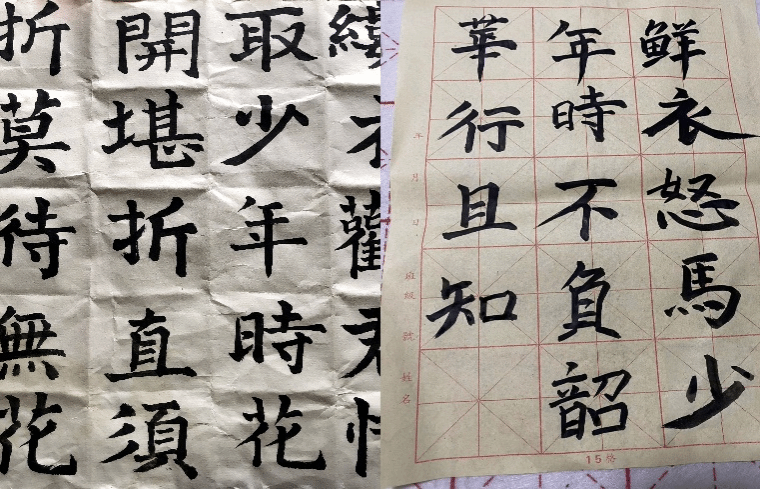 取少年時花
開堪折直須
折莫待無花
鮮衣怒馬少
年時不負韶
華行且知
年月日、班級 號 姓名
15格